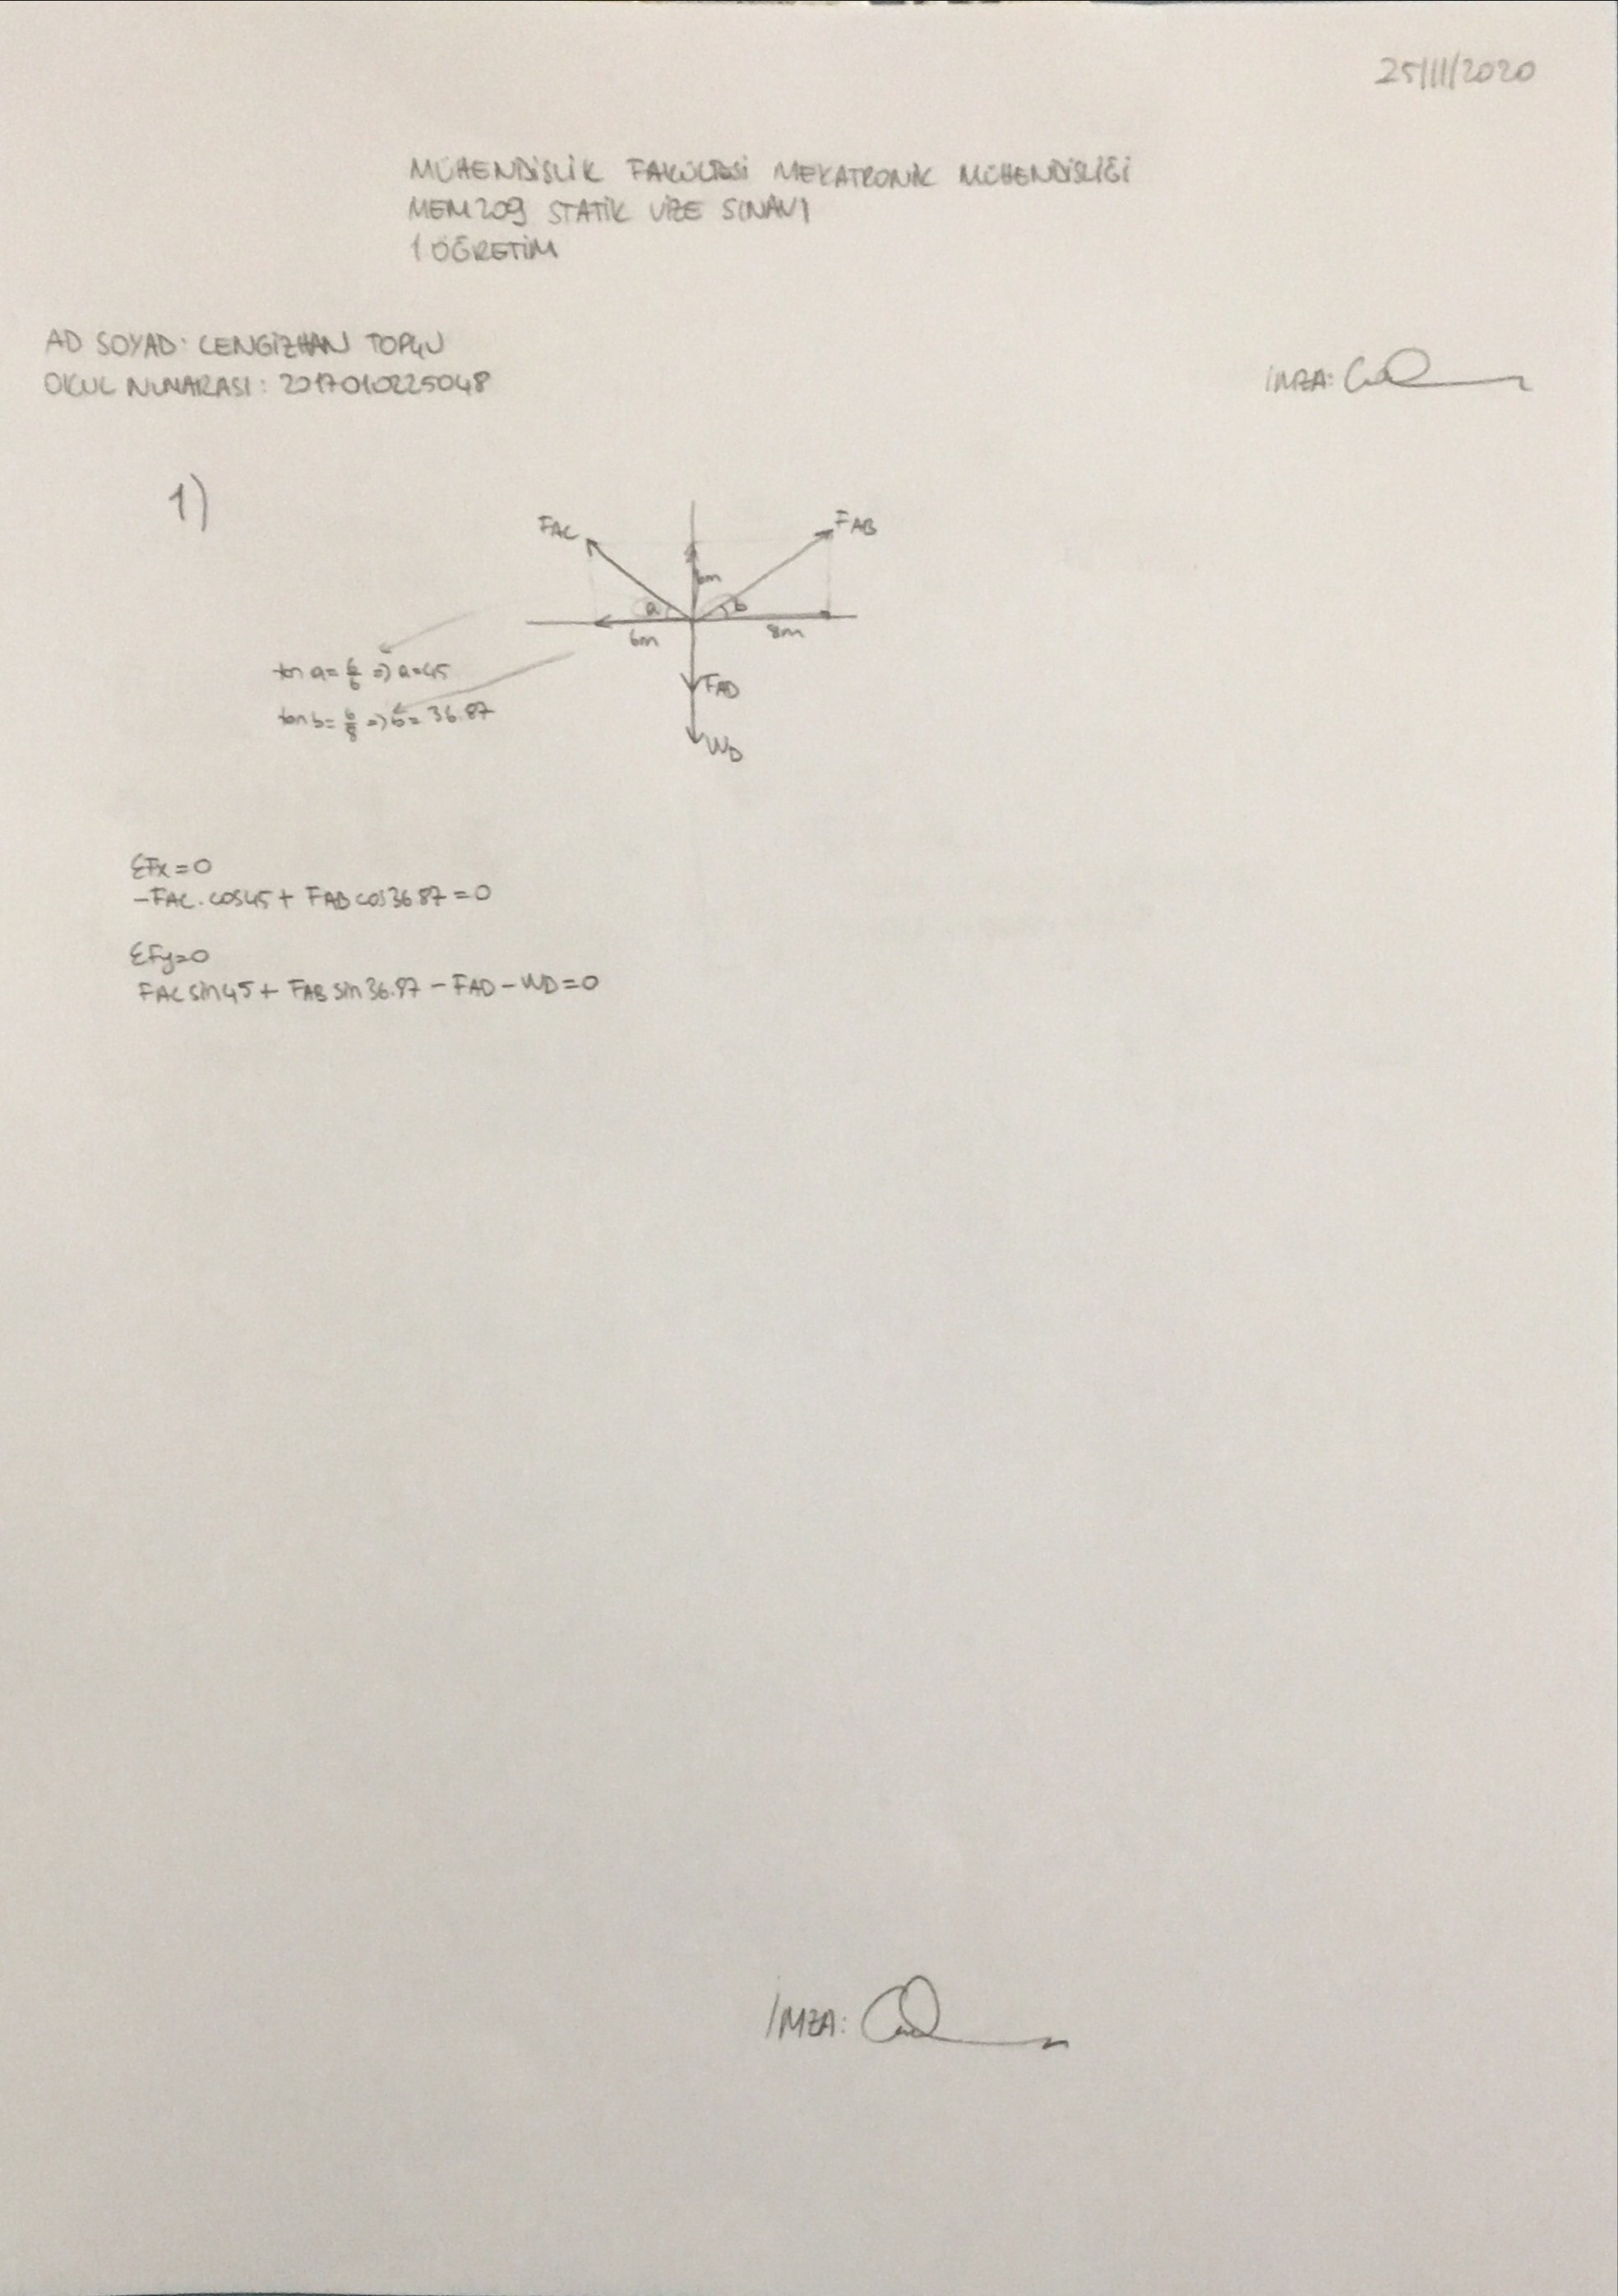 25/11/2020
MÜHENDİSLİK FAKÜLTESİ MEKATRONİK MÜHENDİSLİĞİ
MEM209 STATİK VİZE SINAVI
1 ÖĞRETİM
AD SOYAD: CENGİZHAN TOPÇU
OKUL NUMARASI: 2017010225048
İMZA:
1)
FAC
FAB
6m
a
b
6m
8m
tan a = 6/6 => a=45
FAD
tan b = 6/8 => b = 36.87
WD
ΣFx=0
-FAC.cos45 + FAB cos36.87=0
ΣFy=0
FAC sin45 + FAB sin36.87 - FAD - WD=0
İMZA: